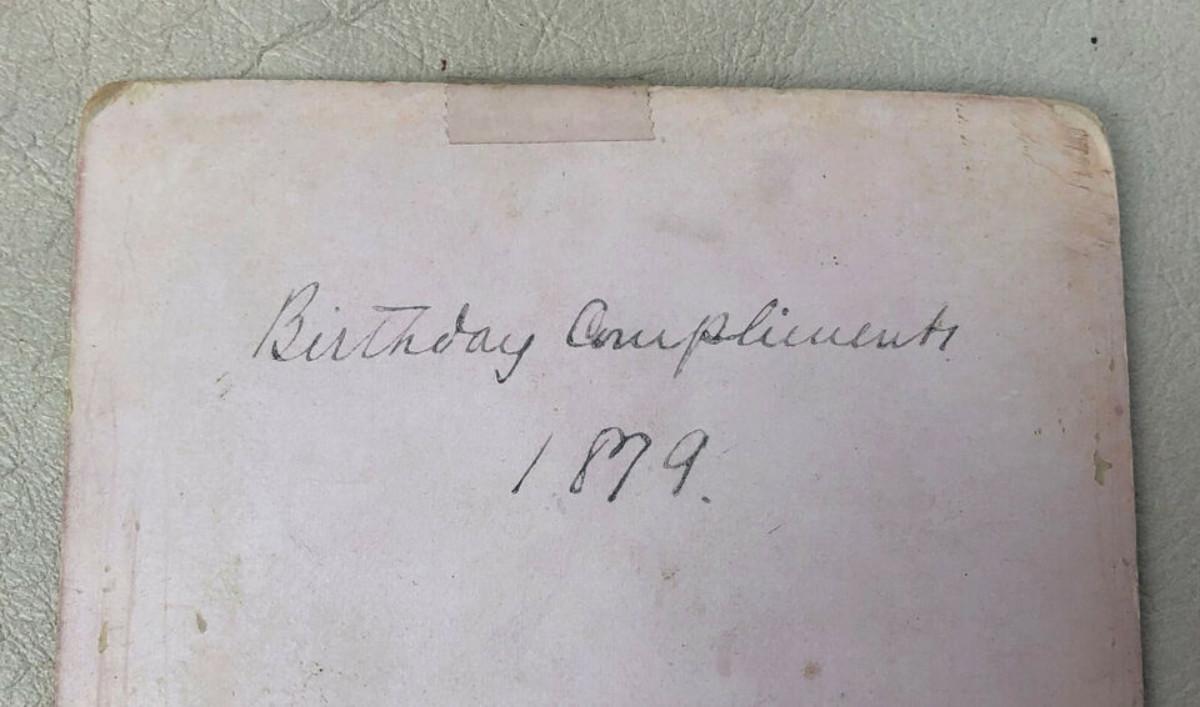 Birthday Compliments
1879.